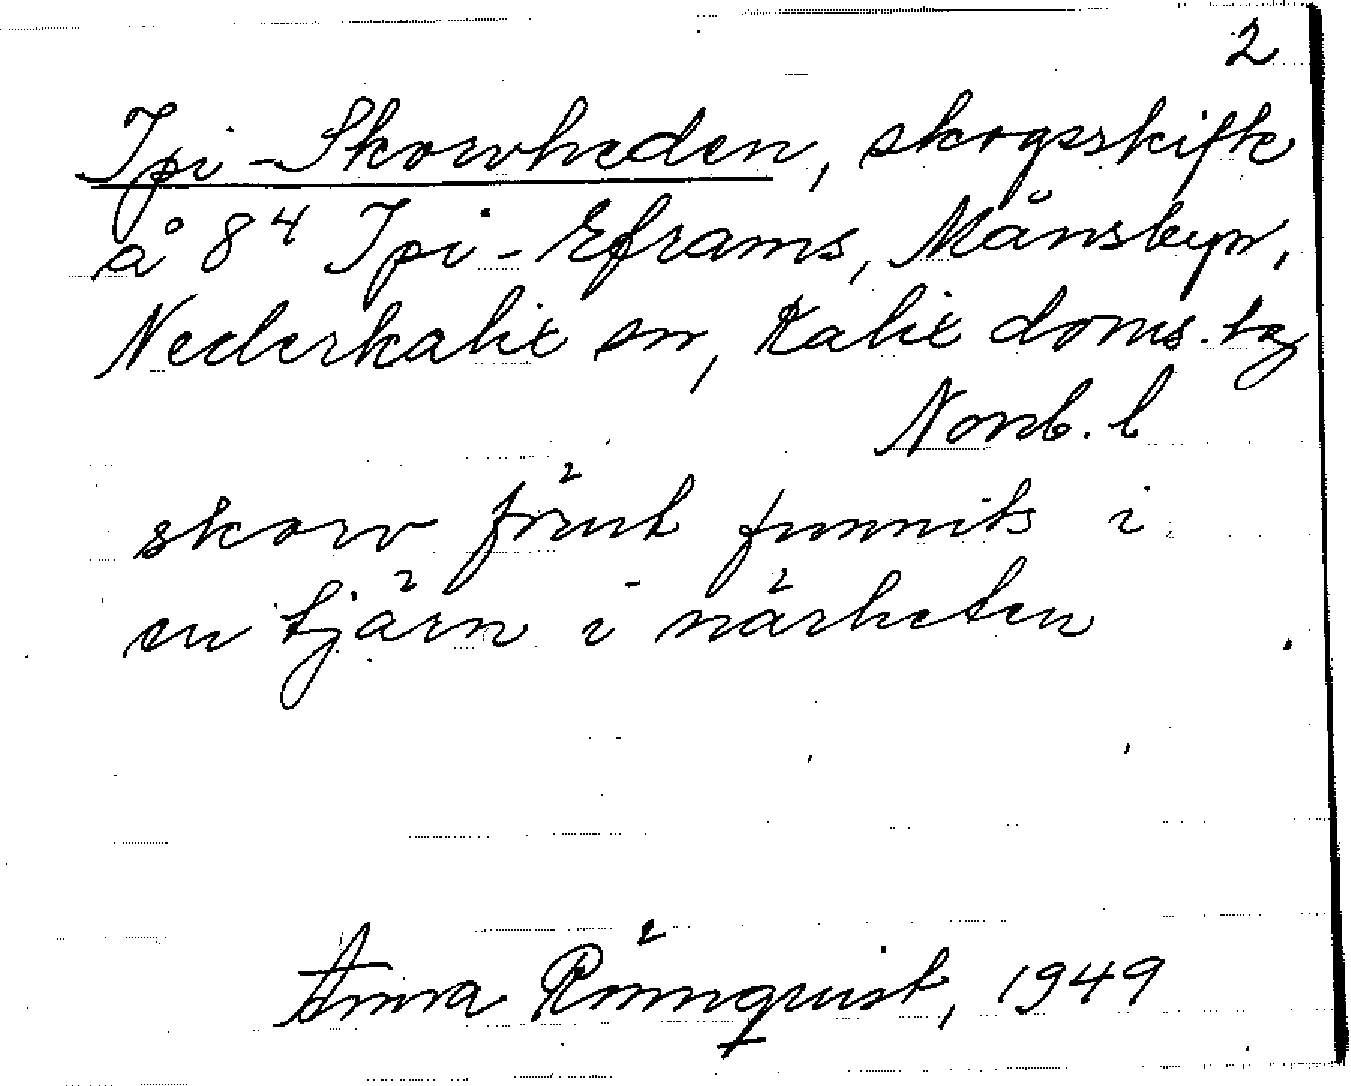 2
Ipi-Skorvheden, skogsskifte
å 8⁴ Ipi-Eframs, Månsbyn,
Nederkalix sn, Kalix doms.tg
Norrb. l
skorv förut funnits i
en tjärn i närheten
Anna Rönnquist, 1949